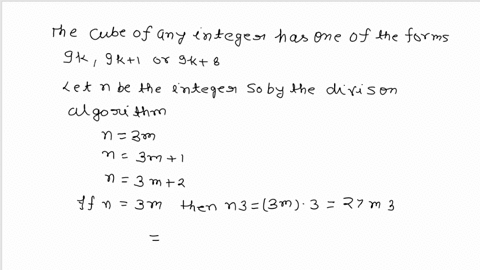 The cube of any integer has one of the forms
9k, 9k+1 or 9k+8
Let n be the integer so by the divison
algorithm
n = 3m
n = 3m+1
n = 3m+2
If n = 3m then n3 = (3m)·3 = 27m3
=